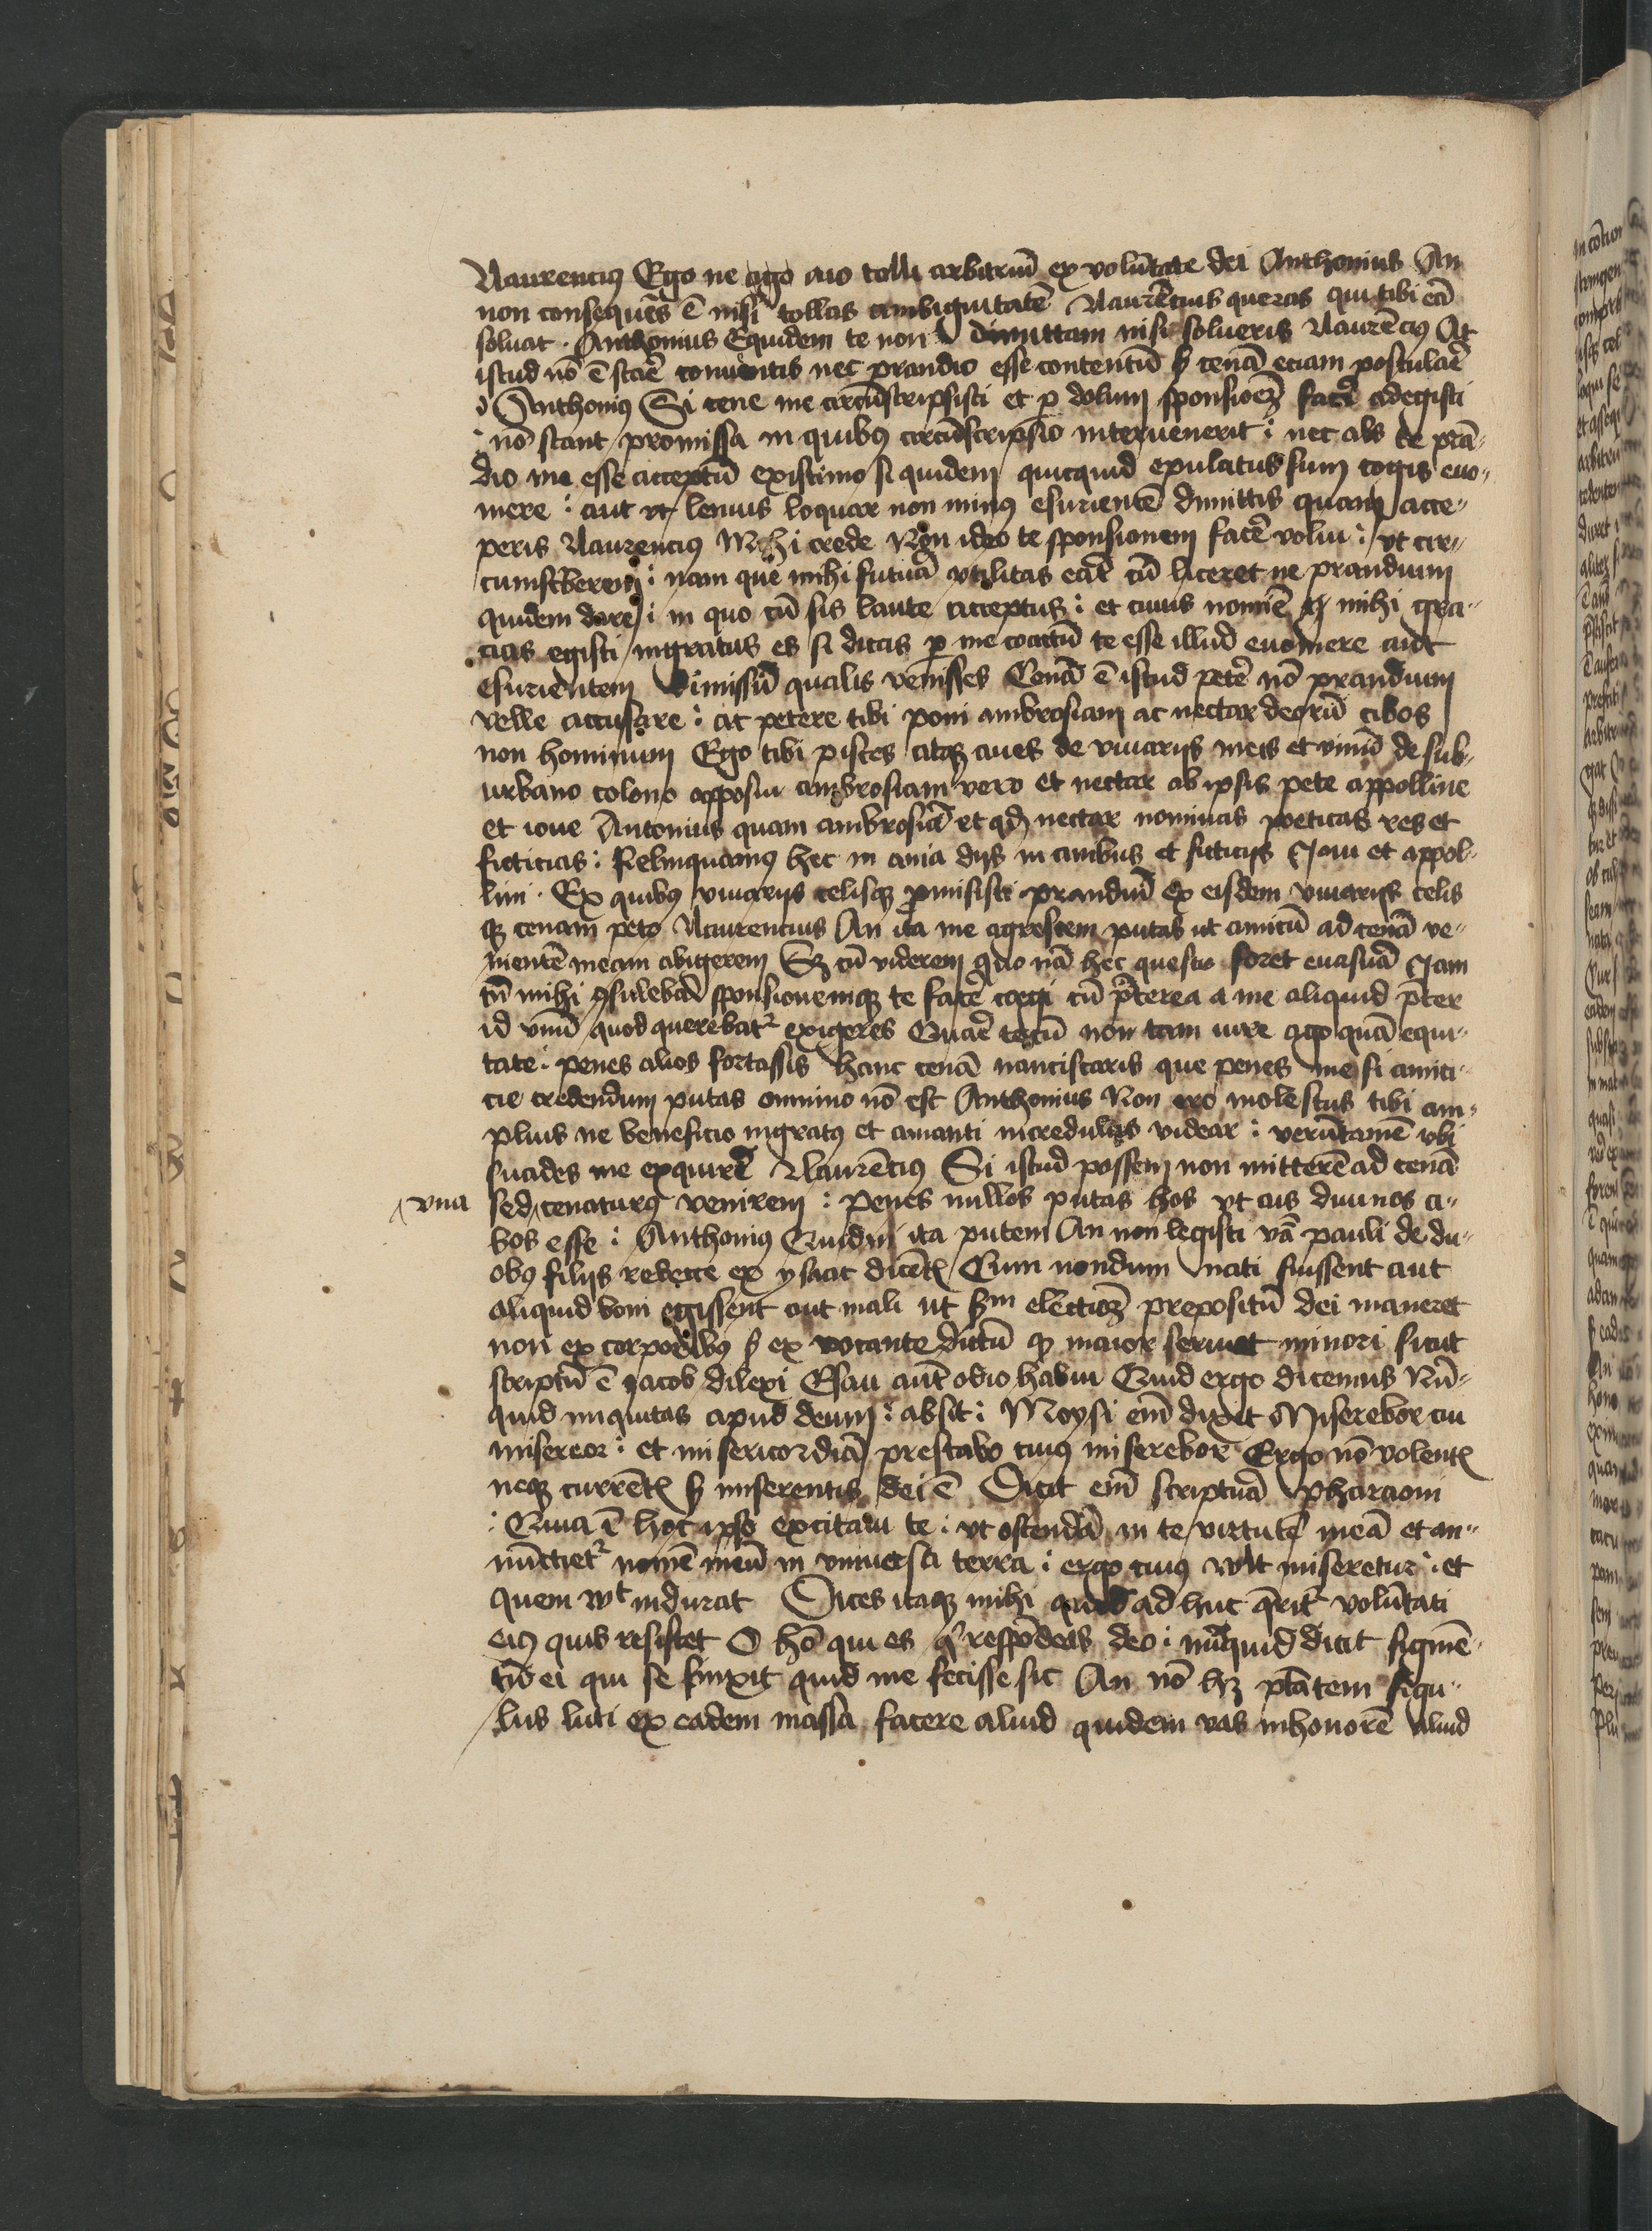 Naurencius Ego ne ego aio tolli arbitriū ex volūtate dei Anthonius An
non consequēs ē nisi tollas ambiguitatē Naurētius queras qui tibi eā
soluat · Anthonius Equidem te non dimittam nisi solueris Naurēcius At
istud nō ē stare conuentis nec prandio esse contentū sed cenā eciam postulare
Anthonius Si cene me circūscripsisti et per dolum sponsioēm facere adegisti
nō stant promissa in quibus circūscripsio interuenerit : nec abs te prā-
dio me esse acceptū existimo si quidem quicquid epulatus sum cogis euo-
mere : aut vt lenius loquar non minus esurientē dimittis quam acce-
peris Naurencius Mihi crede Non ideo te sponsionem facere volui : vt cir-
cumscriberem : nam que mihi futura vtilitas erat cū liceret ne prandium
quidem dare : in quo cū sis laute acceptus : et cuius nomīe mihi gra-
cias egisti ingratus es si dicas per me coactū te esse illud euomere aut
esurientem dimissū qualis venisses Cenā ē istud petere nō prandium
velle accusare : ac petere tibi poni ambrosiam ac nectar deorū cibos
non hominum Ego tibi pisces atque aues de viuariis meis et vinū de sub-
urbano colono apposui ambrosiam vero et nectar ab ipsis pete appolline
et ioue Antonius quam ambrosiā et quod nectar nominas poeticas res et
ficticias : Relinquamus hec inania diis inanibus et ficticiis Ioui et appol-
lini · Ex quibus viuariis celisque promisisti prandiū ex eisdem viuariis celis
que cenam peto Naurencius An ita me agrestem putas ut amicū ad cenā ve-
nientē meam abigerem Sed cū viderem quonam hec questio foret euasura Iam
tū mihi consulebam sponsionemque te facere coegi cū preterea a me aliquid preter
id vnū quod querebatur exigeres Quare tecū non tam iure ago quā equi-
tate : penes alios fortassis hanc cenā nanciscaris que penes me si amici-
cie credendum putas omnino nō est Anthonius Non ero molestus tibi am-
plius ne beneficio ingratus et amanti incredulus videar : verūtamē vbi
suades me exquirere Naurēcius Si istud possem non mitterē ad cenā
^ vna sed ^ cenaturus venirem : penes nullos putas hos vt ais diuinos ci-
bos esse : Anthonius Quidni ita putem An non legisti verba pauli de du-
obus filiis rebecce ex ysaac dicētis Cum nondum nati fuissent aut
aliquid boni egissent aut mali ut secundum electioēm propositū dei maneret
non ex corporibus sed ex vocante dictū quod maior seruiet minori sicut
scriptū ē jacob dilexi Esau autē odio habui Quid ergo dicemus Nū-
quid iniquitas apud deum : absit : Moysi enim dixit Miserebor cui
misereor : et misericordiā prestabo cuius miserebor Ergo nō volentis
neque currētis sed miserentis dei ē Dicit enim scriptura Pharaoni
: Quia ī hoc ipso excitaui te : vt ostendā in te virtutē meā et an-
nūctietur nomē meū in vniuersa terra : ergo cuius wlt miseretur : et
quem wlt indurat Dices itaque mihi quid ad huc querit volūtati
eius quis resistet O homo qui es qui respōdeas deo : nūquid dicit figmē-
tū ei qui se finxit quid me fecisse sic An nō habet potestatem figu-
lus luti ex eadem massa facere aliud quidem vas in honorē aliud